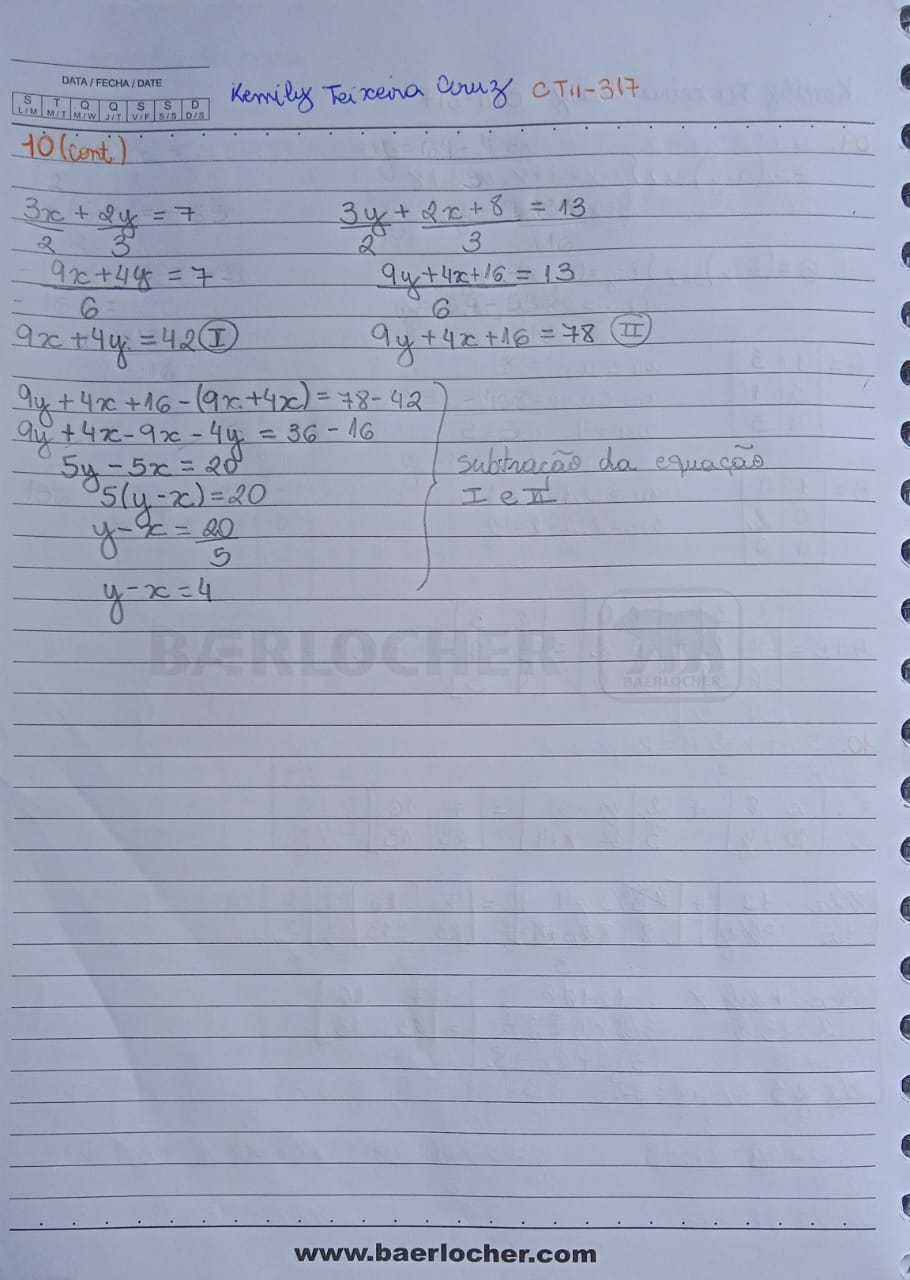 DATA / FECHA / DATE
S T Q Q S S D
L/M M/T M/W J/T V/F S/S D/S
Kemily Teixeira Cruz CTII-317
10 (cont.)
3x/2 + 2y/3 = 7
3y/2 + (2x+8)/3 = 13
(9x+4y)/6 = 7
(9y+4x+16)/6 = 13
9x+4y=42 (I)
9y+4x+16=78 (II)
9y+4x+16-(9x+4x)=78-42
9y+4x-9x-4y=36-16
5y-5x=20
5(y-x)=20
y-x=20/5
y-x=4
subtração da equação
I e II
BÆRLOCHER
BAERLOCHER
www.baerlocher.com